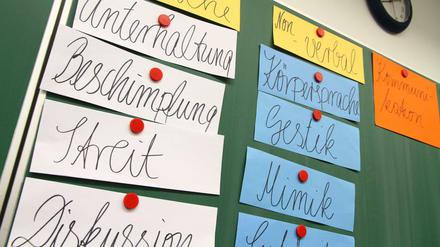 Unterhaltung
Beschimpfung
Streit
Diskussion
Non-verbal
Körpersprache
Gestik
Mimik
Kommuni-
kation